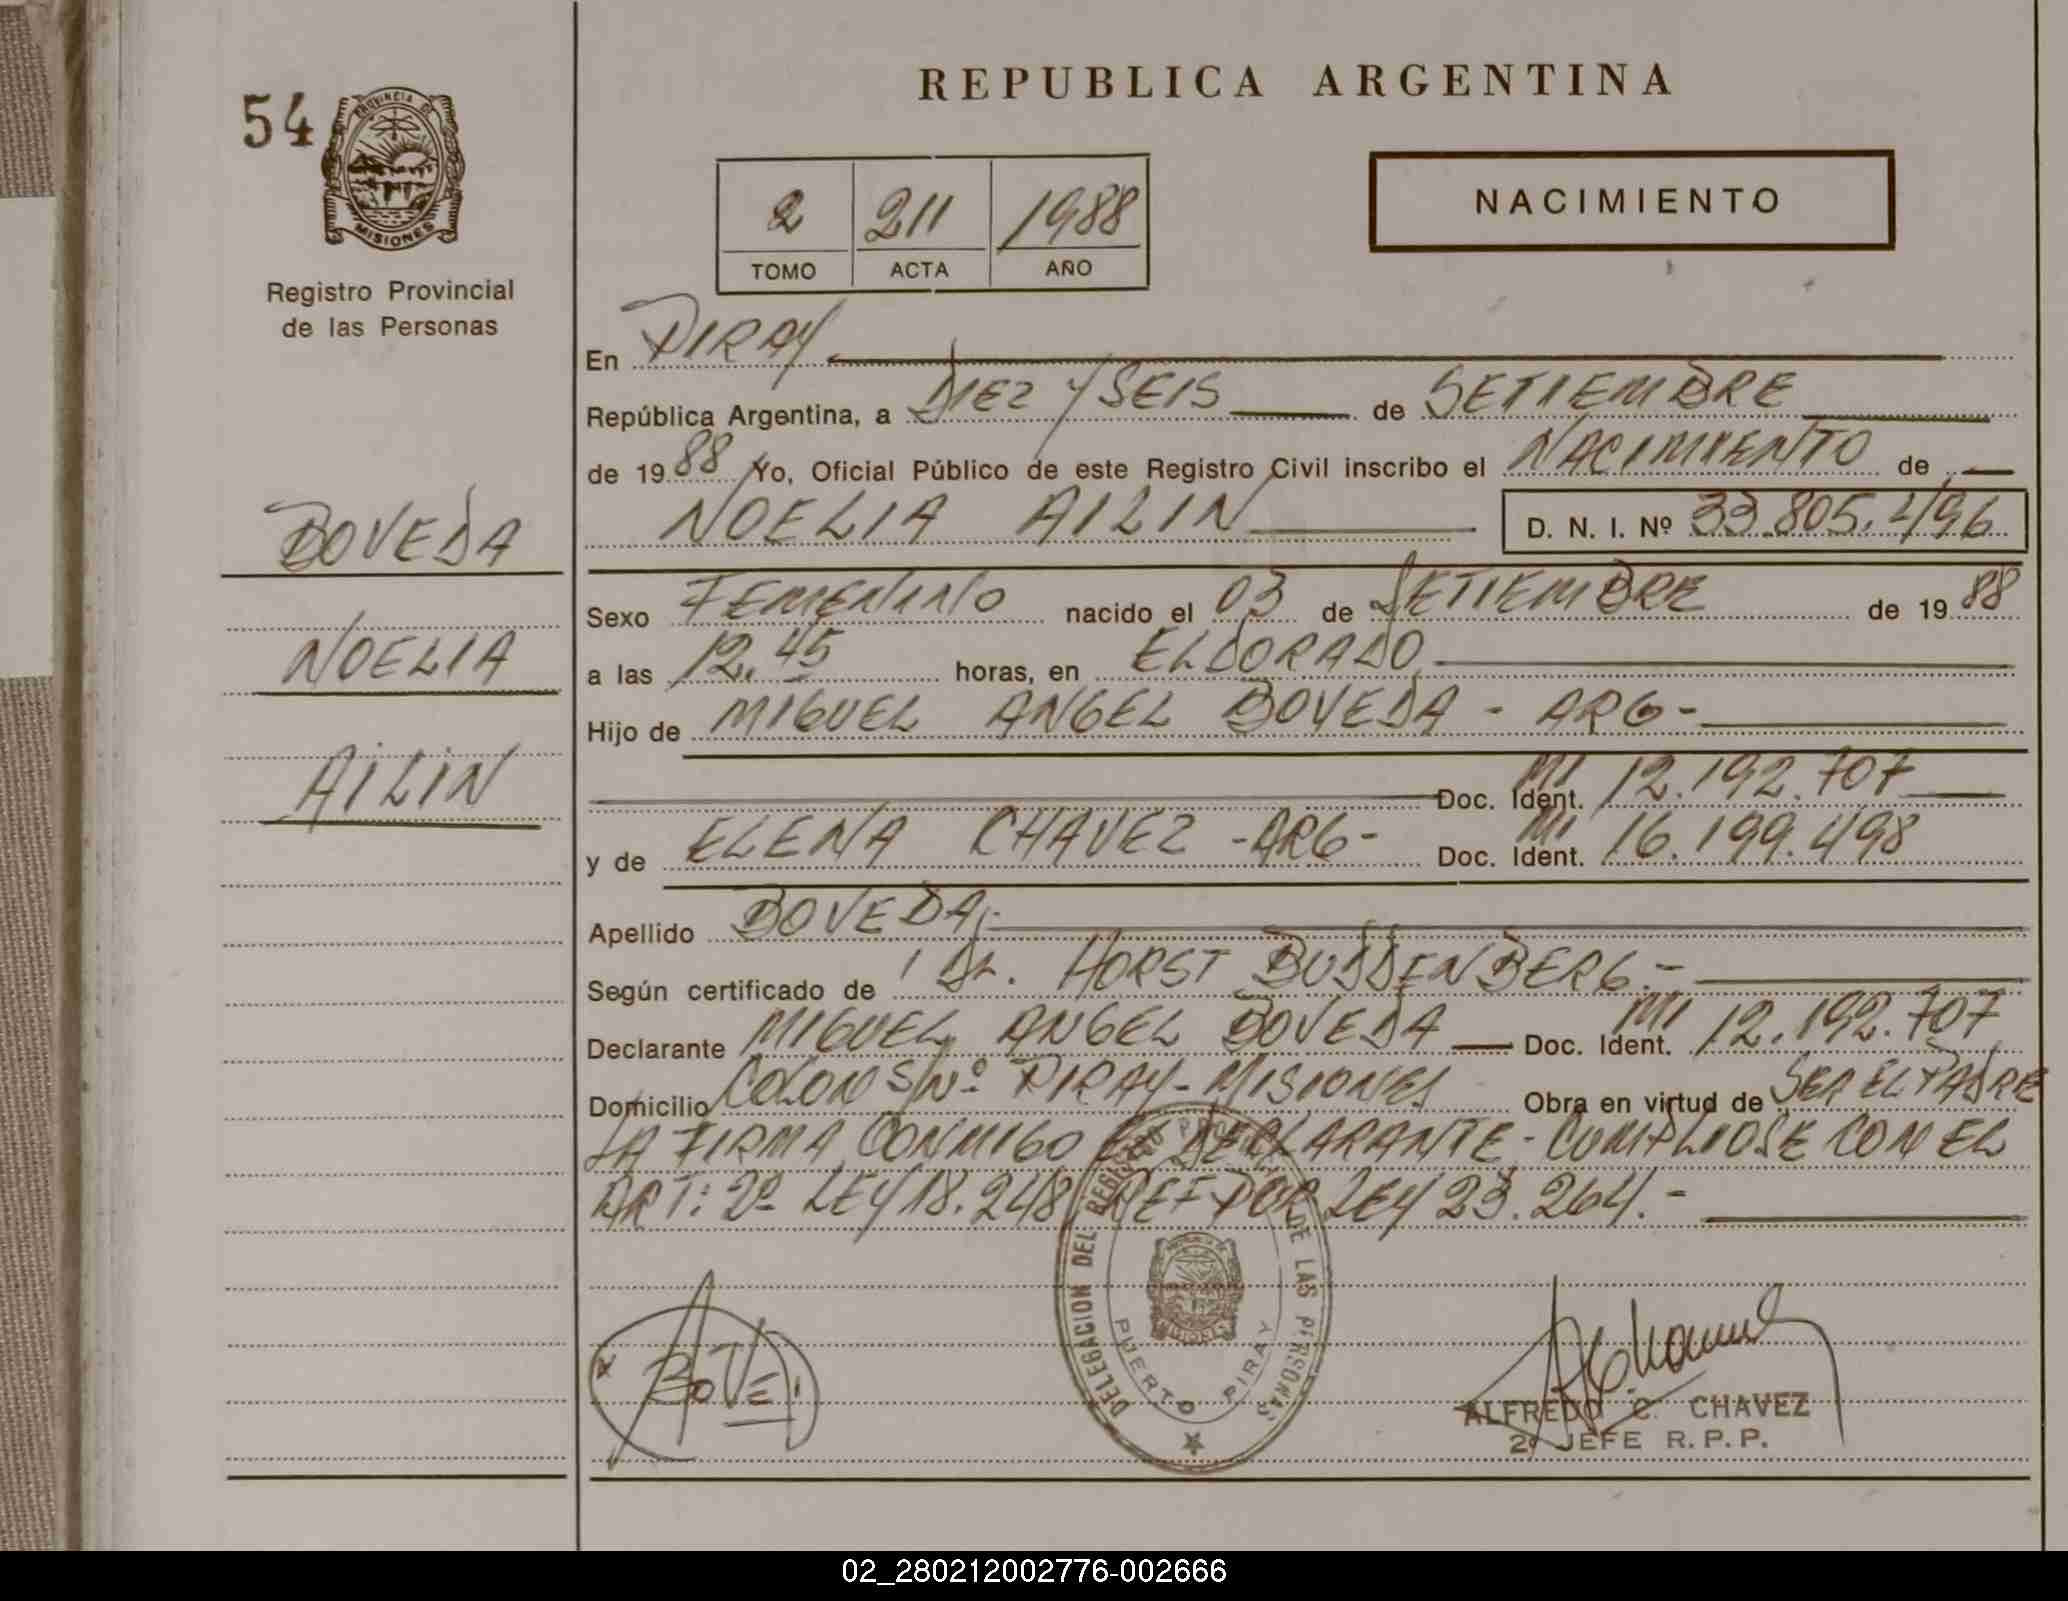 REPUBLICA ARGENTINA
54
PROVINCIA DE
MISIONES
Registro Provincial
de las Personas
NACIMIENTO
2 211 1988
TOMO ACTA AÑO
En PIRAY
República Argentina, a DIEZ Y SEIS de SETIEMBRE
de 1988 Yo, Oficial Público de este Registro Civil inscribo el NACIMIENTO de
NOELIA AILIN D. N. I. Nº 33.805.496
BOVEDA
NOELIA
AILIN
Sexo FEMENINO nacido el 03 de SETIEMBRE de 1988
a las 12.45 horas, en ELDORADO
Hijo de MIGUEL ANGEL BOVEDA - ARG -
Doc. Ident. MI 12.192.707
y de ELENA CHAVEZ - ARG - Doc. Ident. MI 16.199.498
Apellido BOVEDA.-
Según certificado de HORST BUSSENBERG.-
Declarante MIGUEL ANGEL BOVEDA Doc. Ident. MI 12.192.707
Domicilio COLON S/Nº PIRAY - MISIONES Obra en virtud de SER EL PADRE
LA FIRMA CONMIGO EL DECLARANTE - CUMPLIOSE CON EL
ART: 2º LEY 18.248 REF POR LEY 23.264.-
DELEGACION DEL REGISTRO PROVINCIAL DE LAS PERSONAS
PUERTO PIRAY
MISIONES
BOVE
ALFREDO C. CHAVEZ
2º JEFE R.P.P.
02_280212002776-002666